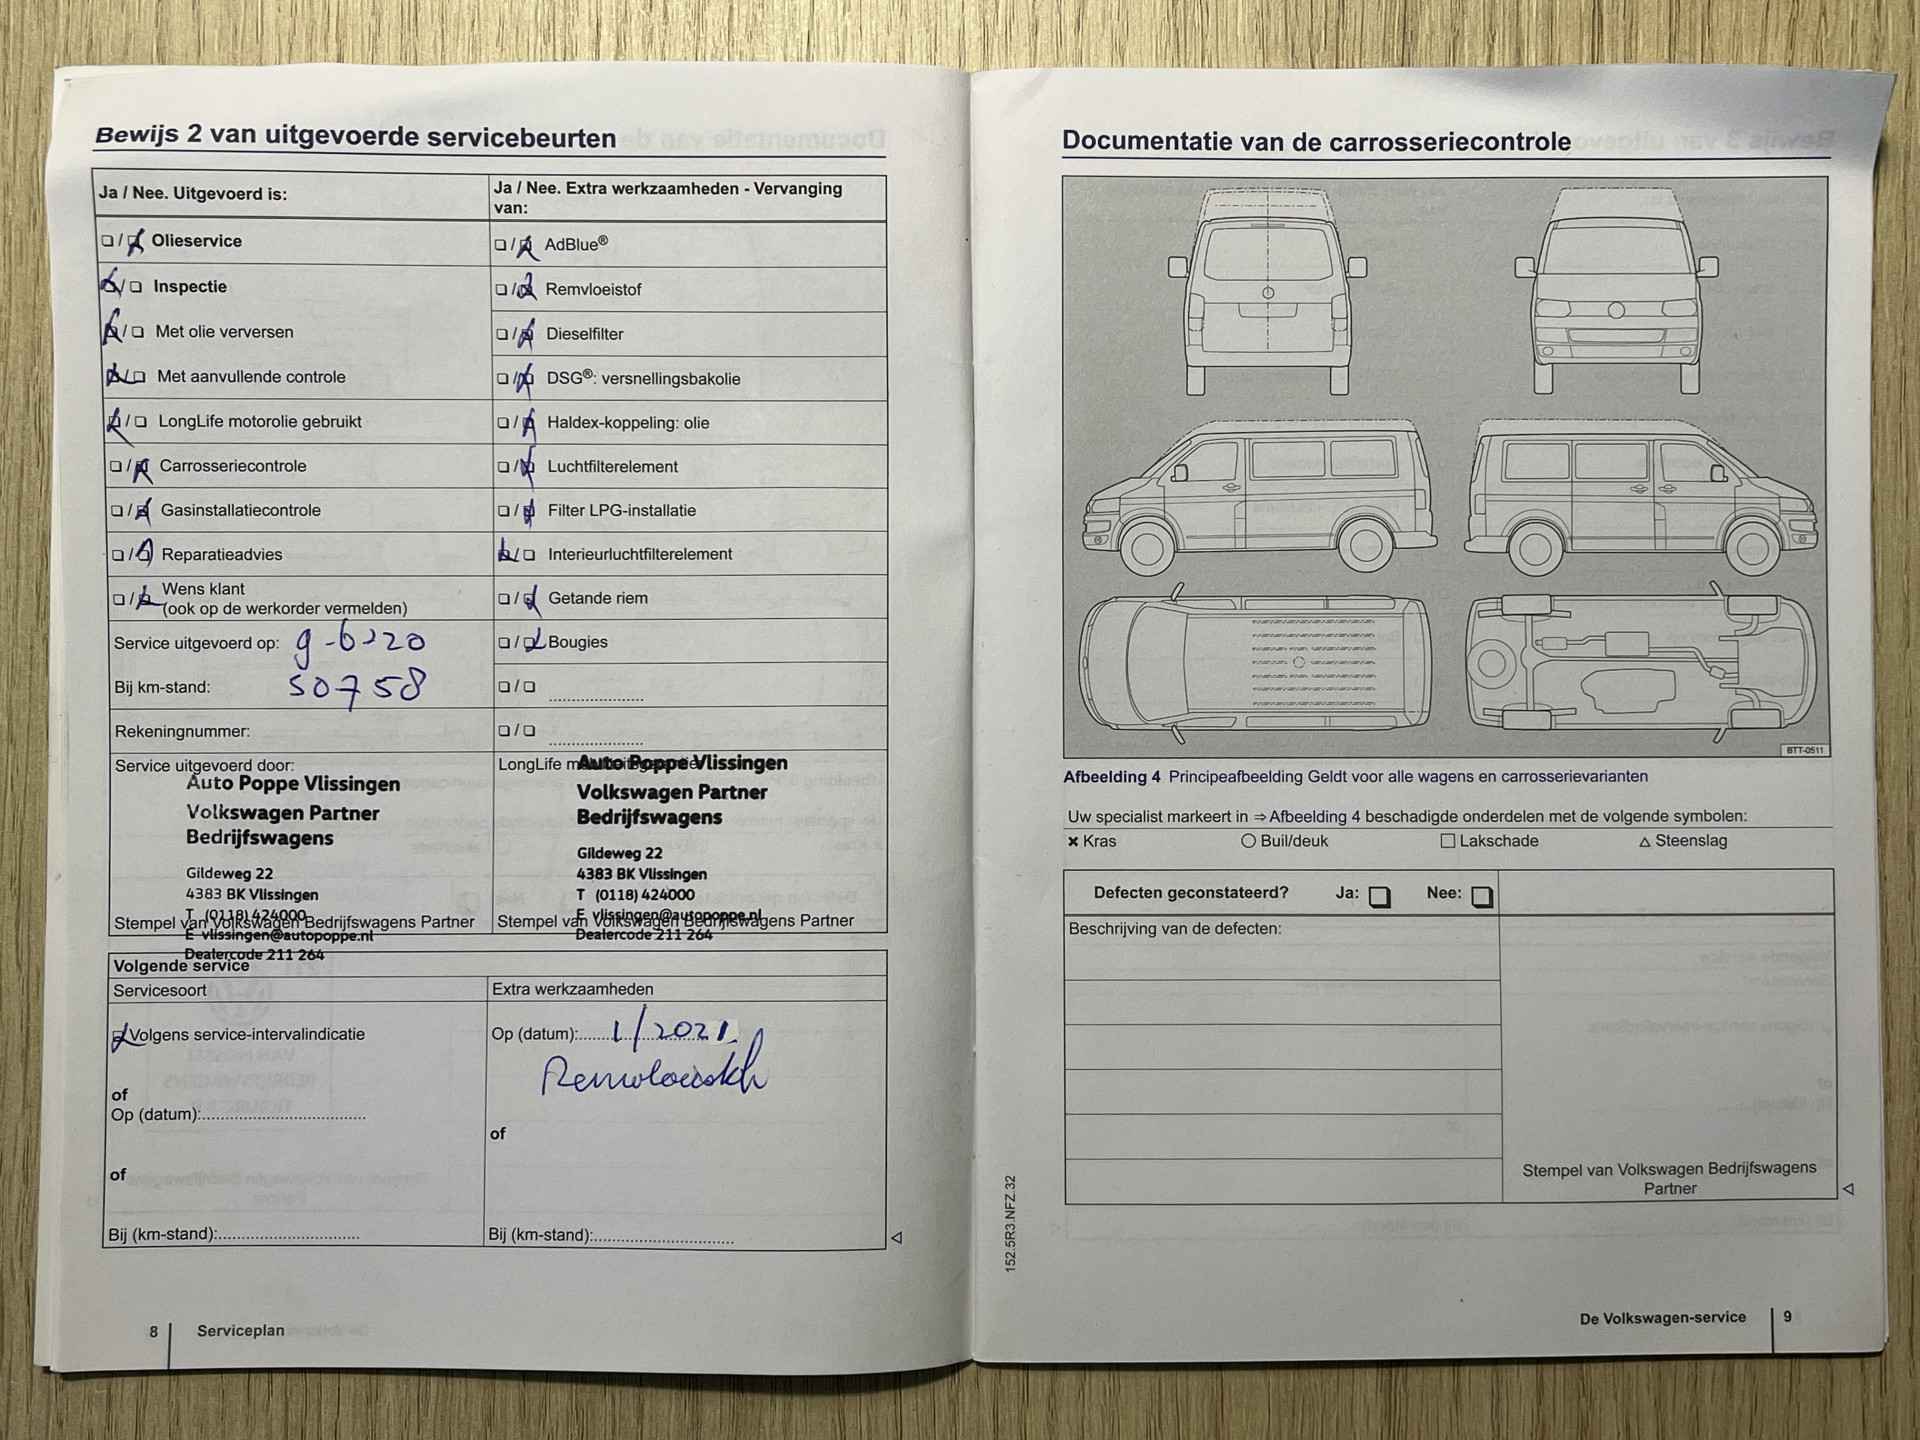 Bewijs 2 van uitgevoerde servicebeurten
Ja / Nee. Uitgevoerd is:
Ja / Nee. Extra werkzaamheden - Vervanging van:
Olieservice
Inspectie
Met olie verversen
Met aanvullende controle
LongLife motorolie gebruikt
Carrosseriecontrole
Gasinstallatiecontrole
Reparatieadvies
Wens klant
(ook op de werkorder vermelden)
Service uitgevoerd op: 9-6-20
Bij km-stand: 50758
Rekeningnummer:
AdBlue®
Remvloeistof
Dieselfilter
DSG®: versnellingsbakolie
Haldex-koppeling: olie
Luchtfilterelement
Filter LPG-installatie
Interieurluchtfilterelement
Getande riem
Bougies
Service uitgevoerd door:
Auto Poppe Vlissingen
Volkswagen Partner
Bedrijfswagens
Gildeweg 22
4383 BK Vlissingen
T (0118) 424000
Stempel van Volkswagen Bedrijfswagens Partner
E vlissingen@autopoppe.nl
Dealercode 211 264
LongLife
Auto Poppe Vlissingen
Volkswagen Partner
Bedrijfswagens
Gildeweg 22
4383 BK Vlissingen
T (0118) 424000
E vlissingen@autopoppe.nl
Stempel van Volkswagen Bedrijfswagens Partner
Dealercode 211 264
Volgende service
Servicesoort
Extra werkzaamheden
Volgens service-intervalindicatie
of
Op (datum):
of
Bij (km-stand):
Op (datum): 1/2021
Remvloeistof
of
Bij (km-stand):
8
Serviceplan
Documentatie van de carrosseriecontrole
BTT-0511
Afbeelding 4 Principeafbeelding Geldt voor alle wagens en carrosserievarianten
Uw specialist markeert in ⇒ Afbeelding 4 beschadigde onderdelen met de volgende symbolen:
× Kras
○ Buil/deuk
□ Lakschade
△ Steenslag
Defecten geconstateerd? Ja: Nee:
Beschrijving van de defecten:
Stempel van Volkswagen Bedrijfswagens
Partner
152.5R3.NFZ.32
De Volkswagen-service
9